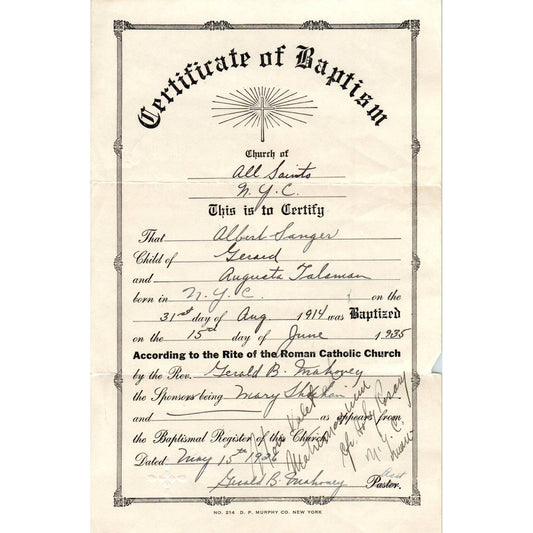 Certificate of Baptism
Church of
All Saints
N.Y.C.
This is to Certify
That Albert Sanger
Child of Gerard
and Augusta Talsman
born in N.Y.C. on the
31st day of Aug 1914 was Baptized
on the 15th day of June 1935
According to the Rite of the Roman Catholic Church
by the Rev. Gerald B. Mahoney
the Sponsors being Mary
and as appears from
the Baptismal Register of this Church
Dated May 15th 193
Gerald B. Mahoney
Pastor.
Matrimonium
Holy Rosary
N.Y.C.
NO. 214 D. P. MURPHY CO. NEW YORK